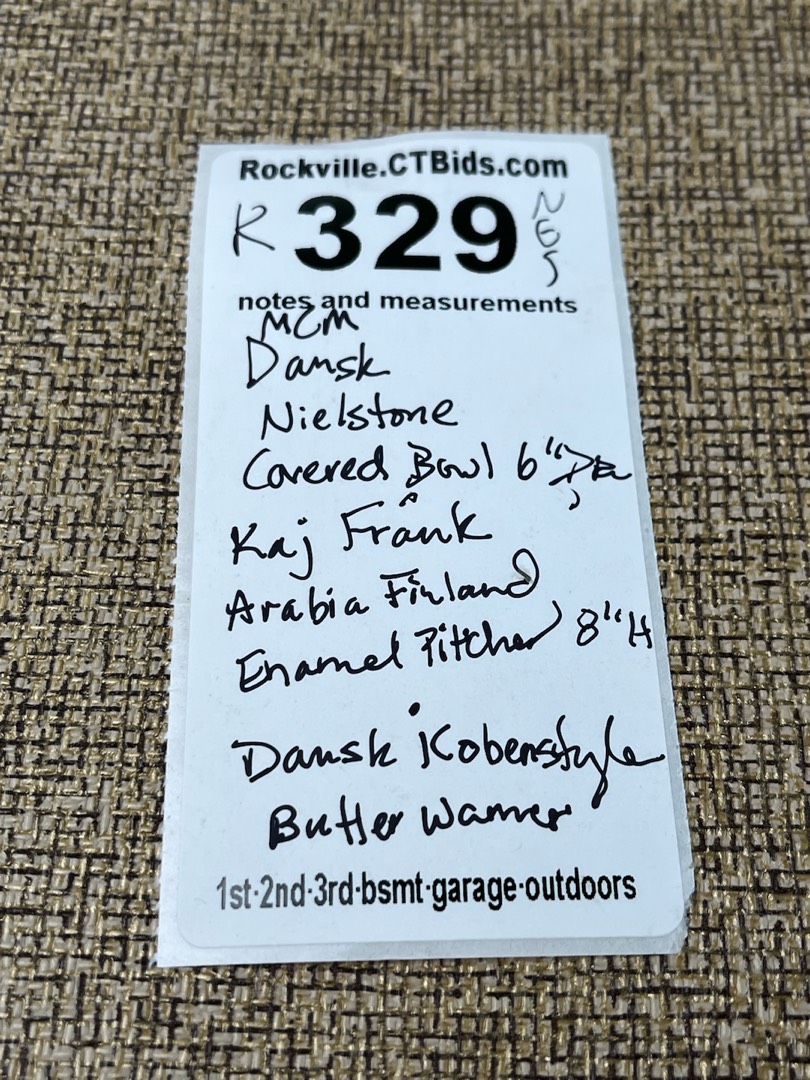 Rockville.CTBids.com
K 329 NES
notes and measurements
MCM
Dansk
Nielstone
Covered Bowl 6" Dia
Kaj Frank
Arabia Finland
Enamel Pitcher 8" H
Dansk Kobenstyle
Butter Warmer
1st·2nd·3rd·bsmt·garage·outdoors